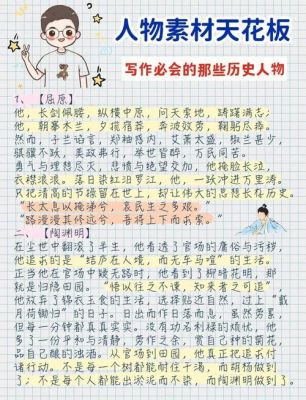 人物素材天花板
写作必会的那些历史人物
1、【屈原】
他，长剑佩腰，纵横中原，问天索地，踌躇满志；
他，朝搴木兰，夕揽宿莽，奔波效劳，鞠躬尽瘁。
然而，子兰谄言，郑袖惑内，艾萧太盛，椒兰是少，
骐骥不跃，美政弗行，举世皆醉，万民同苦。
勇气与理想尽灭，悲情与绝望交加，他掩脸长泣，
衣襟浪浪。落日染红汨罗江，他，一跃冲进万里涛。
只把清亮的节操留在世上，却让伟大的思想长存历史。
“长太息以掩涕兮，哀民生之多艰。”
“路漫漫其修远兮，吾将上下而求索。”
二、【陶渊明】
在尘世中翻滚了半生，他看透了官场的庸俗与污秽，
他追求的是“结庐在人境，而无车马喧”的生活。
正当他在官场中疑无路时，他看到了柳暗花明，那
就是归隐田园。“悟以往之不谏，知来者之可追”，
他放弃了锦衣玉食的生活，选择贴近自然，过上“戴
月荷锄归”的日子。日出而作日落而息，虽然劳累，
但每一分钟都真真实实。没有功名利禄的烦忧，他
多了一份平和与清静，劳作之余，赏自己种的菊花，
品自己酿的浊酒。从官场到田园，他真正把追求付
诸行动。不是每一个树都能耐住干渴，而胡杨做到
了；不是每个人都能出淤泥而不染，而陶渊明做到了。